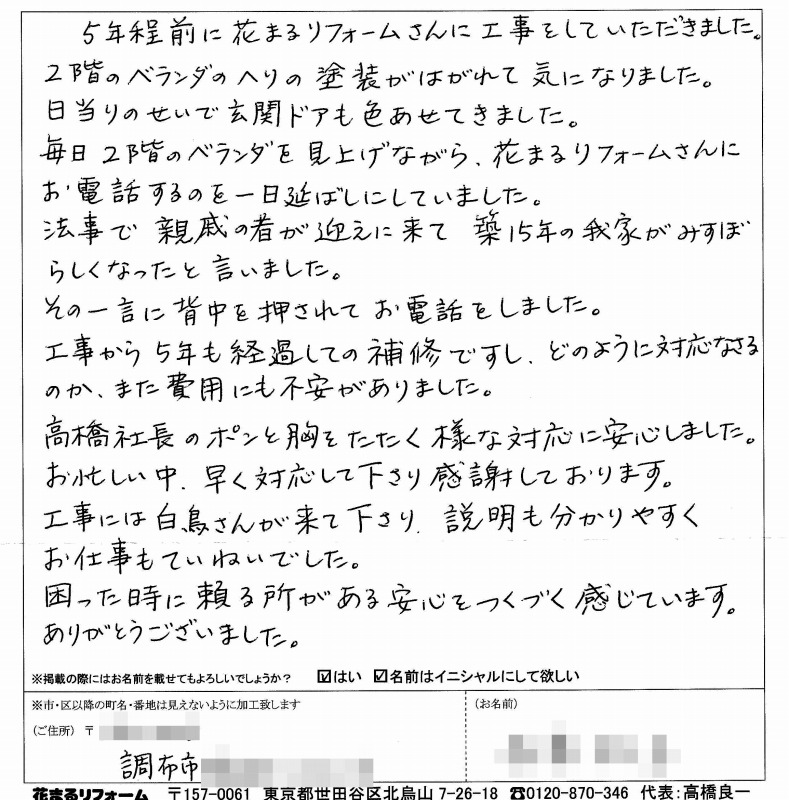 5年程前に花まるリフォームさんに工事をしていただきました。
2階のベランダのへりの塗装がはがれて気になりました。
日当りのせいで玄関ドアも色あせてきました。
毎日2階のベランダを見上げながら、花まるリフォームさんに
お電話するのを一日延ばしにしていました。
法事で親戚の者が迎えに来て築15年の我家がみすぼ
らしくなったと言いました。
その一言に背中を押されてお電話をしました。
工事から5年も経過しての補修ですし、どのように対応なさる
のか、また費用にも不安がありました。
高橋社長のポンと胸をたたく様な対応に安心しました。
お忙しい中、早く対応して下さり感謝しております。
工事には白鳥さんが来て下さり、説明も分かりやすく
お仕事もていねいでした。
困った時に頼る所がある安心をつくづく感じています。
ありがとうございました。
※掲載の際にはお名前を載せてもよろしいでしょうか？ ☑はい ☑名前はイニシャルにして欲しい
※市・区以降の町名・番地は見えないように加工致します
(お名前)
(ご住所) 〒
調布市
花まるリフォーム 〒157-0061 東京都世田谷区北烏山7-26-18 ☎0120-870-346 代表:高橋良一